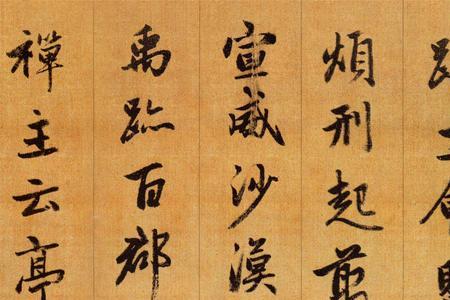 煩刑起翦
宣威沙漠
禹跡百郡
禪主云亭